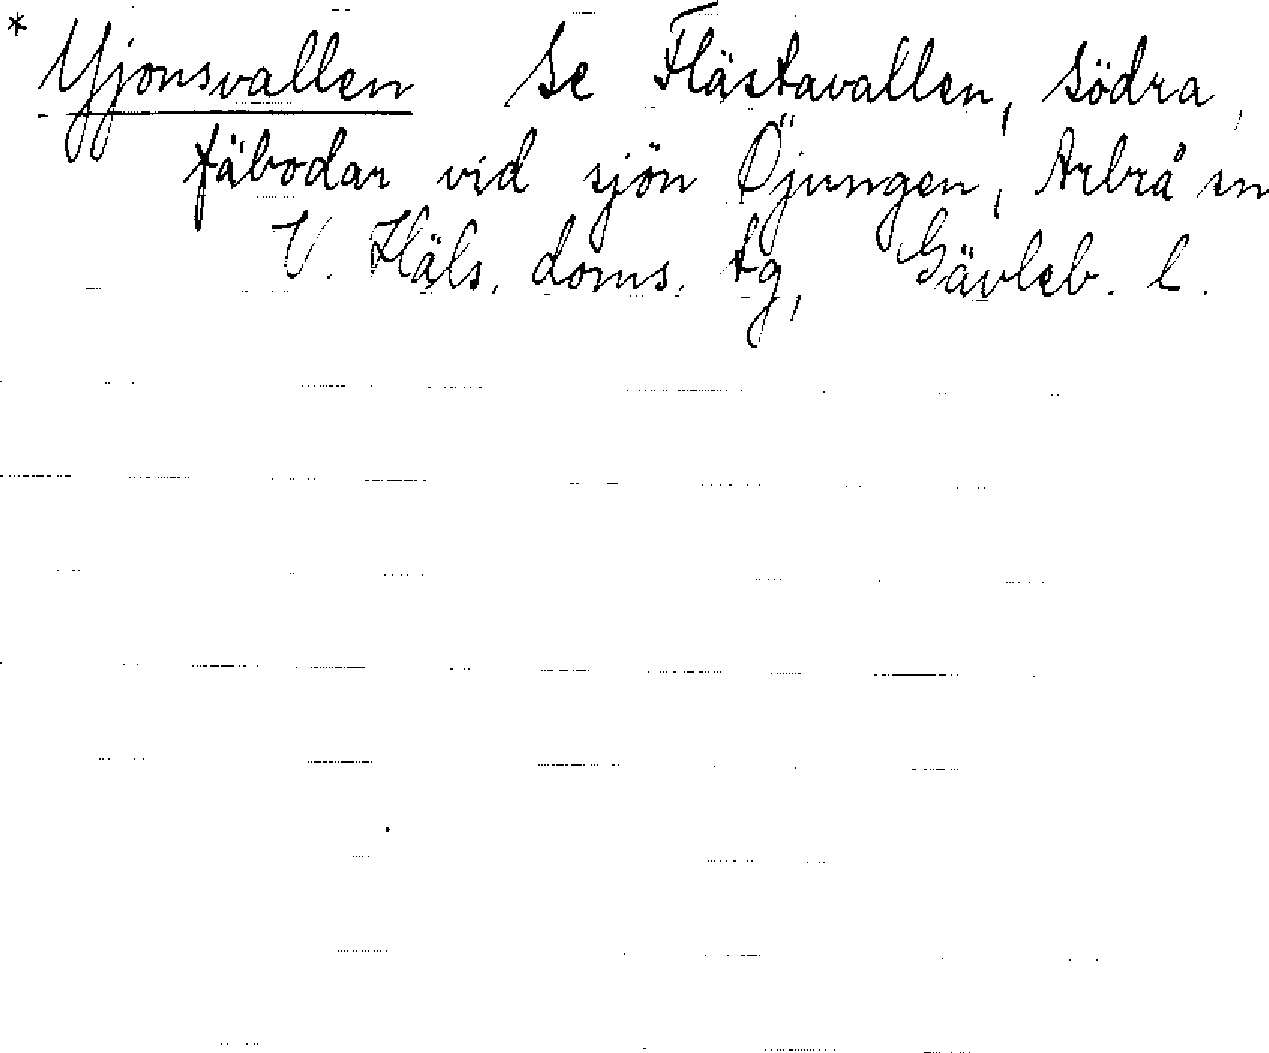 * Yjonsvallen Se Flästavallen, södra,
fäbodar vid sjön Öjungen, Arbrå sn
V. Häls. doms. tg, Gävleb. l.